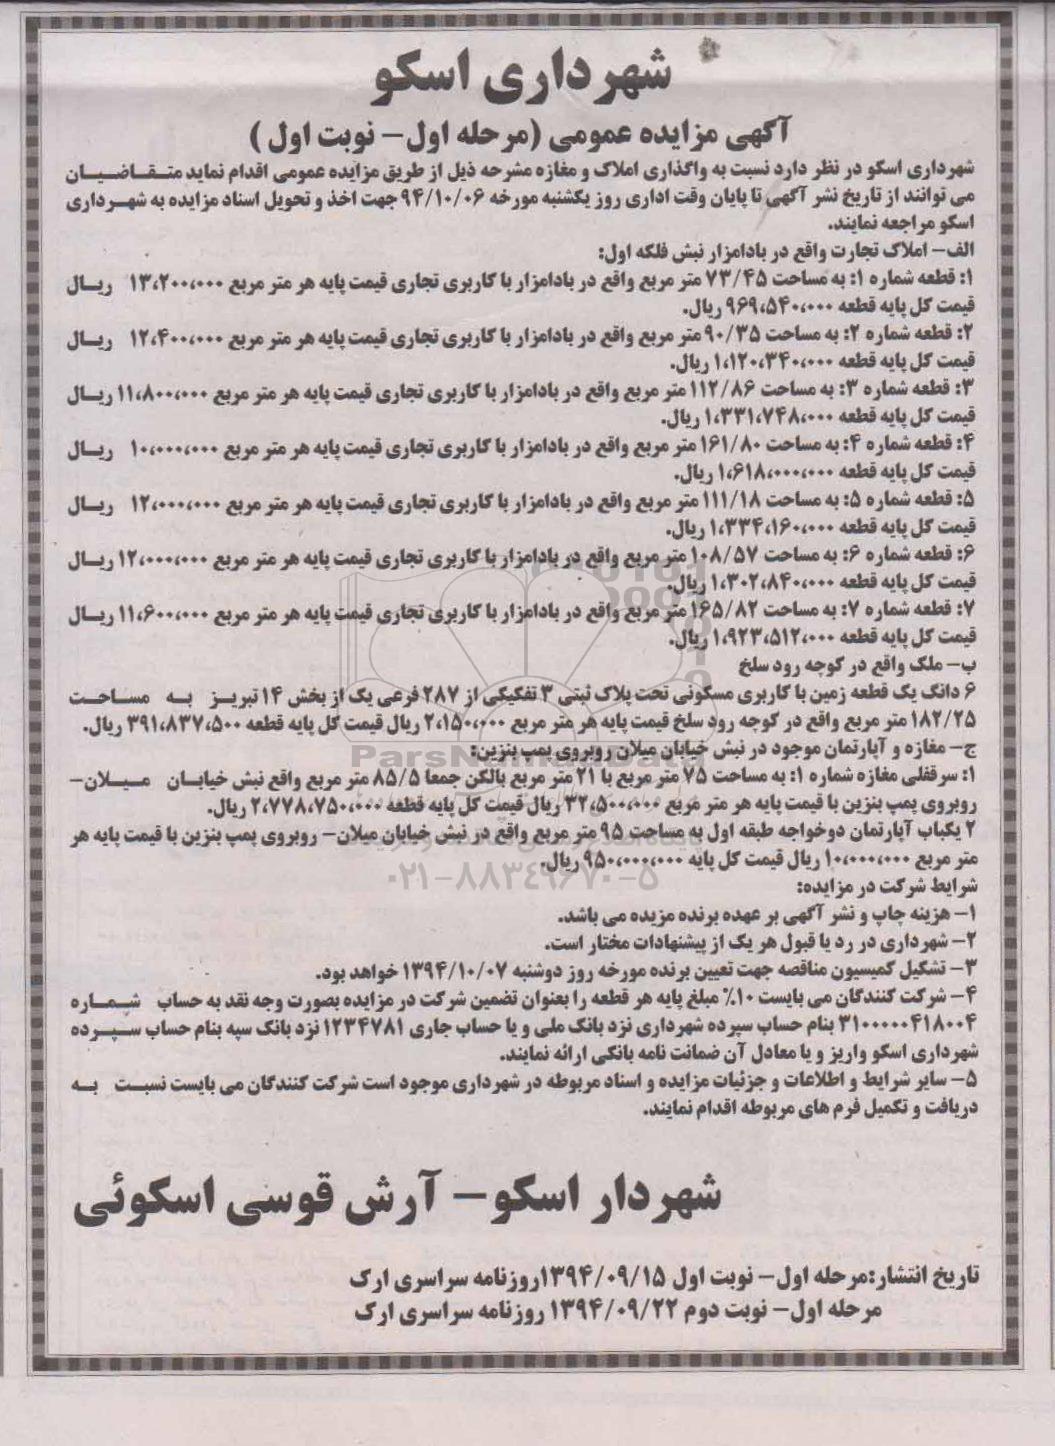 شهرداری اسکو
آگهی مزایده عمومی (مرحله اول- نوبت اول)
شهرداری اسکو در نظر دارد نسبت به واگذاری املاک و مغازه مشرحه ذیل از طریق مزایده عمومی اقدام نماید متقاضیان
می توانند از تاریخ نشر آگهی تا پایان وقت اداری روز یکشنبه مورخه ۹۴/۱۰/۰۶ جهت اخذ و تحویل اسناد مزایده به شهرداری
اسکو مراجعه نمایند.
الف- املاک تجارت واقع در بادامزار نبش فلکه اول:
۱: قطعه شماره ۱: به مساحت ۷۳/۴۵ متر مربع واقع در بادامزار با کاربری تجاری قیمت پایه هر متر مربع ۱۳،۲۰۰،۰۰۰ ریال
قیمت کل پایه قطعه ۹۶۹،۵۴۰،۰۰۰ ریال.
۲: قطعه شماره ۲: به مساحت ۹۰/۳۵ متر مربع واقع در بادامزار با کاربری تجاری قیمت پایه هر متر مربع ۱۲،۴۰۰،۰۰۰ ریال
قیمت کل پایه قطعه ۱،۱۲۰،۳۴۰،۰۰۰ ریال.
۳: قطعه شماره ۳: به مساحت ۱۱۲/۸۶ متر مربع واقع در بادامزار با کاربری تجاری قیمت پایه هر متر مربع ۱۱،۸۰۰،۰۰۰ ریال
قیمت کل پایه قطعه ۱،۳۳۱،۷۴۸،۰۰۰ ریال.
۴: قطعه شماره ۴: به مساحت ۱۶۱/۸۰ متر مربع واقع در بادامزار با کاربری تجاری قیمت پایه هر متر مربع ۱۰،۰۰۰،۰۰۰ ریال
قیمت کل پایه قطعه ۱،۶۱۸،۰۰۰،۰۰۰ ریال.
۵: قطعه شماره ۵: به مساحت ۱۱۱/۱۸ متر مربع واقع در بادامزار با کاربری تجاری قیمت پایه هر متر مربع ۱۲،۰۰۰،۰۰۰ ریال
قیمت کل پایه قطعه ۱،۳۳۴،۱۶۰،۰۰۰ ریال.
۶: قطعه شماره ۶: به مساحت ۱۰۸/۵۷ متر مربع واقع در بادامزار با کاربری تجاری قیمت پایه هر متر مربع ۱۲،۰۰۰،۰۰۰ ریال
قیمت کل پایه قطعه ۱،۳۰۲،۸۴۰،۰۰۰ ریال.
۷: قطعه شماره ۷: به مساحت ۱۶۵/۸۲ متر مربع واقع در بادامزار با کاربری تجاری قیمت پایه هر متر مربع ۱۱،۶۰۰،۰۰۰ ریال
قیمت کل پایه قطعه ۱،۹۲۳،۵۱۲،۰۰۰ ریال.
ب- ملک واقع در کوچه رود سلخ
۶ دانگ یک قطعه زمین با کاربری مسکونی تحت پلاک ثبتی ۳ تفکیکی از ۲۸۷ فرعی یک از بخش ۱۴ تبریز به مساحت
۱۸۲/۲۵ متر مربع واقع در کوچه رود سلخ قیمت پایه هر متر مربع ۲،۱۵۰،۰۰۰ ریال قیمت کل پایه قطعه ۳۹۱،۸۳۷،۵۰۰ ریال.
ج- مغازه و آپارتمان موجود در نبش خیابان میلان روبروی پمپ بنزین:
ParsNamadData
۱: سرقفلی مغازه شماره ۱: به مساحت ۷۵ متر مربع با ۲۱ متر مربع بالکن جمعا ۸۵/۵ متر مربع واقع نبش خیابان میلان-
روبروی پمپ بنزین با قیمت پایه هر متر مربع ۳۲،۵۰۰،۰۰۰ ریال قیمت کل پایه قطعه ۲،۷۷۸،۷۵۰،۰۰۰ ریال.
۲ یکباب آپارتمان دوخواجه طبقه اول به مساحت ۹۵ متر مربع واقع در نبش خیابان میلان- روبروی پمپ بنزین با قیمت پایه هر
متر مربع ۱۰،۰۰۰،۰۰۰ ریال قیمت کل پایه ۹۵۰،۰۰۰،۰۰۰ ریال.
۰۲۱-۸۸۳۴۹۶۷۰-۵
شرایط شرکت در مزایده:
۱- هزینه چاپ و نشر آگهی بر عهده برنده مزیده می باشد.
۲- شهرداری در رد یا قبول هر یک از پیشنهادات مختار است.
۳- تشکیل کمیسیون مناقصه جهت تعیین برنده مورخه روز دوشنبه ۱۳۹۴/۱۰/۰۷ خواهد بود.
۴- شرکت کنندگان می بایست ۱۰٪ مبلغ پایه هر قطعه را بعنوان تضمین شرکت در مزایده بصورت وجه نقد به حساب شماره
۳۱۰۰۰۰۰۴۱۸۰۰۴ بنام حساب سپرده شهرداری نزد بانک ملی و یا حساب جاری ۱۲۳۴۷۸۱ نزد بانک سپه بنام حساب سپرده
شهرداری اسکو واریز و یا معادل آن ضمانت نامه بانکی ارائه نمایند.
۵- سایر شرایط و اطلاعات و جزئیات مزایده و اسناد مربوطه در شهرداری موجود است شرکت کنندگان می بایست نسبت به
دریافت و تکمیل فرم های مربوطه اقدام نمایند.
شهردار اسکو- آرش قوسی اسکوئی
تاریخ انتشار:مرحله اول- نوبت اول ۱۳۹۴/۰۹/۱۵روزنامه سراسری ارک
مرحله اول- نوبت دوم ۱۳۹۴/۰۹/۲۲ روزنامه سراسری ارک